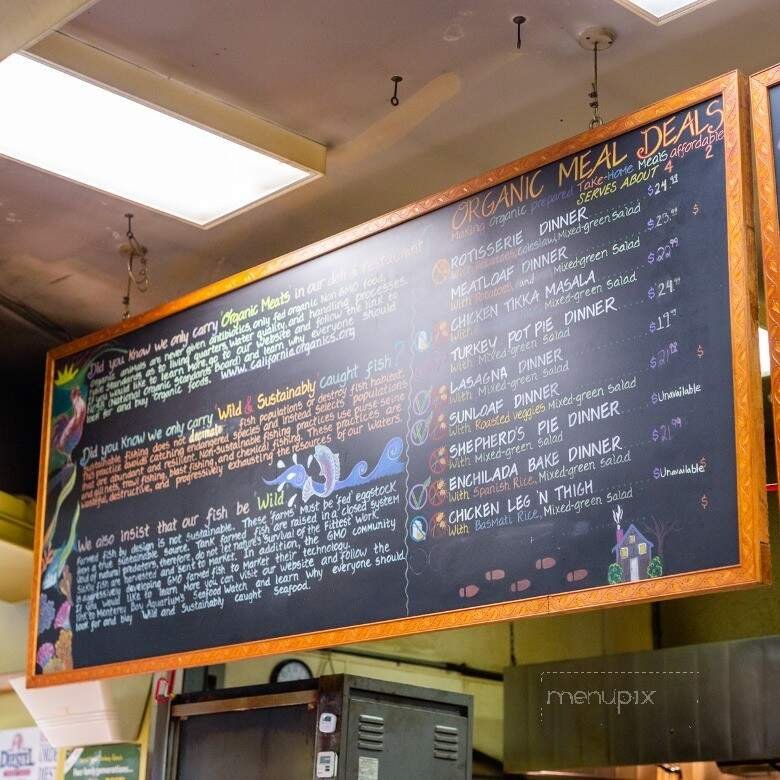 Did you Know we only carry 'Organic Meats' in our deli & restaurant
Organic animals are never given antibiotics, only fed organic Non GMO food,
as to living quarters, Water quality and handling processes.
If you would like to learn More go to our Website and follow the link to
and learn why everyone should
look for and buy organic foods. www.californiaorganics.org
Did you Know we only carry 'Wild & Sustainably' caught fish
Sustainable fishing does not decimate fish populations or destroy fish habitat.
This practice avoids catching endangered species and instead selects populations
that are abundant and resilient. Non-Sustainable fishing practices use purse seine
and gill nets, trawl fishing, blast fishing and chemical fishing. These practices are
wasteful, destructive, and progressively exhausting the resources of our Waters.
We also insist that our fish be 'Wild'
Farmed fish by design is not sustainable. These 'farms' Must be 'fed' eggstock
from a true sustainable source. Tank farmed fish are raised in a closed system
void of natural predators, therefore, do not let nature's Survival of the Fittest work.
Sickly fish are harvested and sent to market. In addition, the GMO community
is aggressively developing GMO farmed fish to Market their technology.
If you would like to learn More you can visit our website and follow the
link to Monterey Bay Aquarium's Seafood Watch, and learn why everyone should
look for and buy Wild and Sustainably caught seafood.
ORGANIC MEAL DEALS
Making organic prepared Take-Home Meals affordable
SERVES ABOUT 4 2
ROTISSERIE DINNER $24.99
With Potatoes, Coleslaw, Mixed-green Salad
MEATLOAF DINNER $23.99 $
With Potatoes, and Mixed-green Salad
CHICKEN TIKKA MASALA $22.99
With Mixed-green Salad
TURKEY POT PIE DINNER $24.99
With Mixed-green Salad
LASAGNA DINNER $19.99
With Mixed-green Salad
SUNLOAF DINNER $21.99 $
With Roasted veggies Mixed-green Salad
SHEPHERD'S PIE DINNER $Unavailable
With Mixed-green Salad
ENCHILADA BAKE DINNER $21.99 $
With Spanish Rice, Mixed-green Salad
CHICKEN LEG 'N THIGH $Unavailable $
With Basmati Rice, Mixed-green Salad
$
menupix